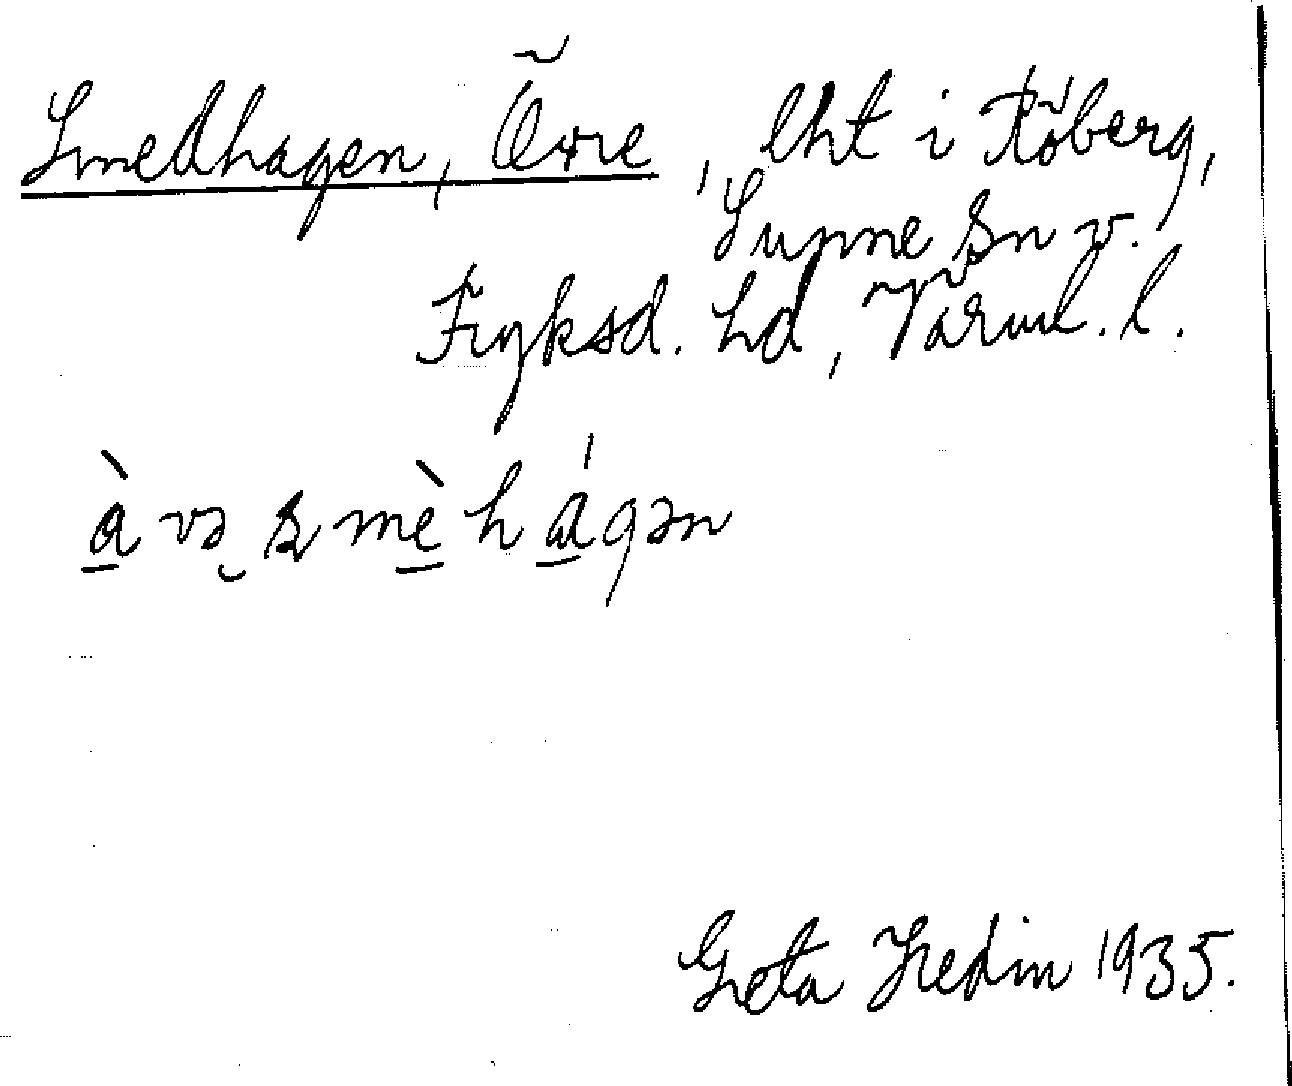 Smedhagen, Övre, lht i Röberg,
Sunne sn v.
Fryksd. hd, Värml. l.
à və smè há gən
Greta Hedin 1935.